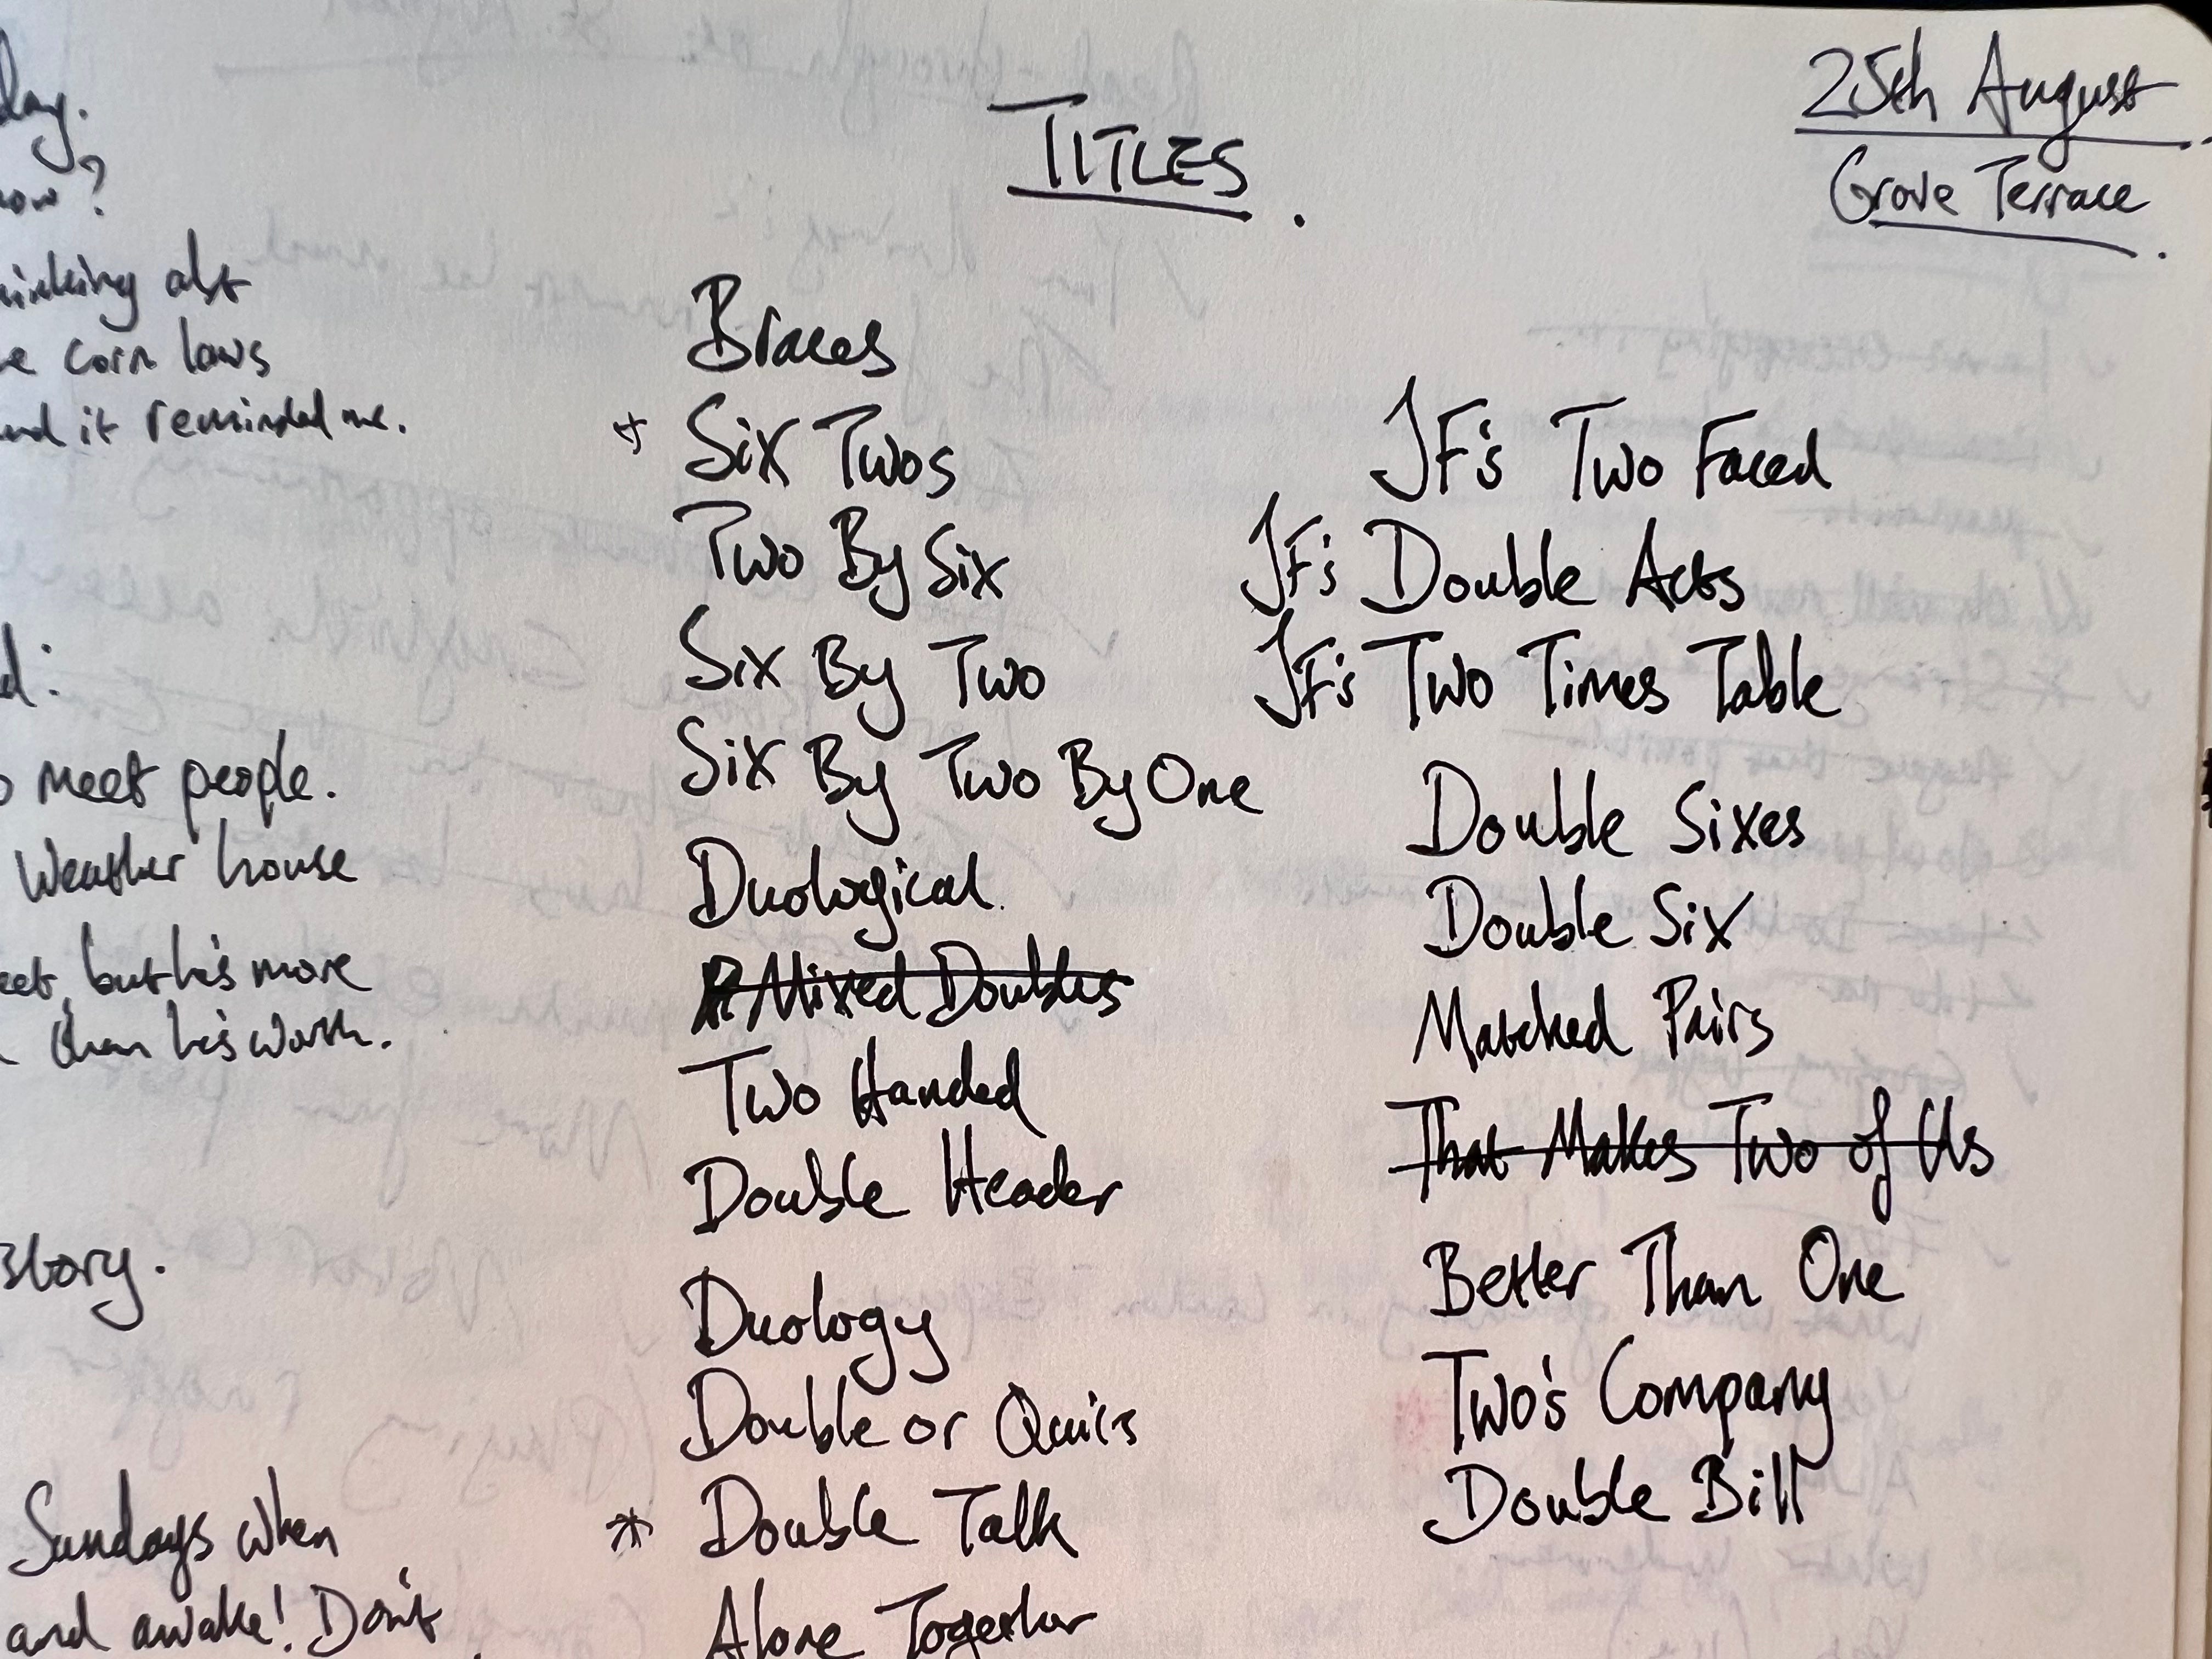 25th August
Grove Terrace.
TITLES.
Braces
+ Six Twos
Two By Six
Six By Two
Six By Two By One
Duological.
Mixed Doubles
Two Handed
Double Header
Duology
Double or Quits
* Double Talk
Alone Together
JF's Two Faced
JF's Double Acts
JF's Two Times Table
Double Sixes
Double Six
Matched Pairs
That Makes Two of Us
Better Than One
Two's Company
Double Bill
alt
corn laws
it reminded me.
meet people.
Weather house
but he's more
than his worth.
story.
Sundays when
and awake! Don't